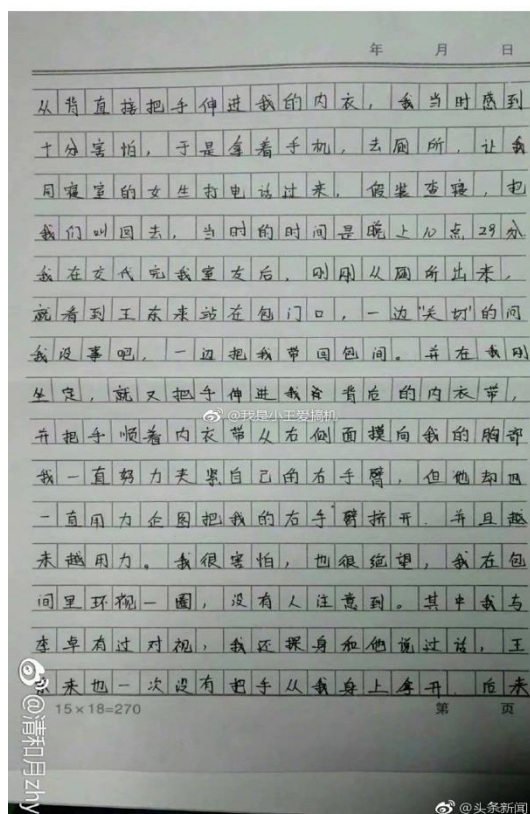 年 月 日
从背直接把手伸进我的内衣，我当时感到
十分害怕，于是拿着手机，去厕所，让我
同寝室的女生打电话过来，假装查寝，把
我们叫回去，当时的时间是晚上10点29分
我在交代完我室友后，刚刚从厕所出来，
就看到王东来站在包门口，一边"关切"的问
我没事吧，一边把我带回包间。并在我刚
坐定，就又把手伸进我背后的内衣带，
@我是小王爱搞机
并把手顺着内衣带从右侧面摸向我的胸部
我一直努力夹紧自己的右手臂，但他却
一直用力企图把我的右手臂挤开.并且越
来越用力。我很害怕，也很绝望，我在包
间里环视一圈，没有人注意到。其中我与
李卓有过对视，我还探身和他说过话，王
来也一次没有把手从我身上拿开.后来
15×18=270 第 页
@清和月zhy
@头条新闻